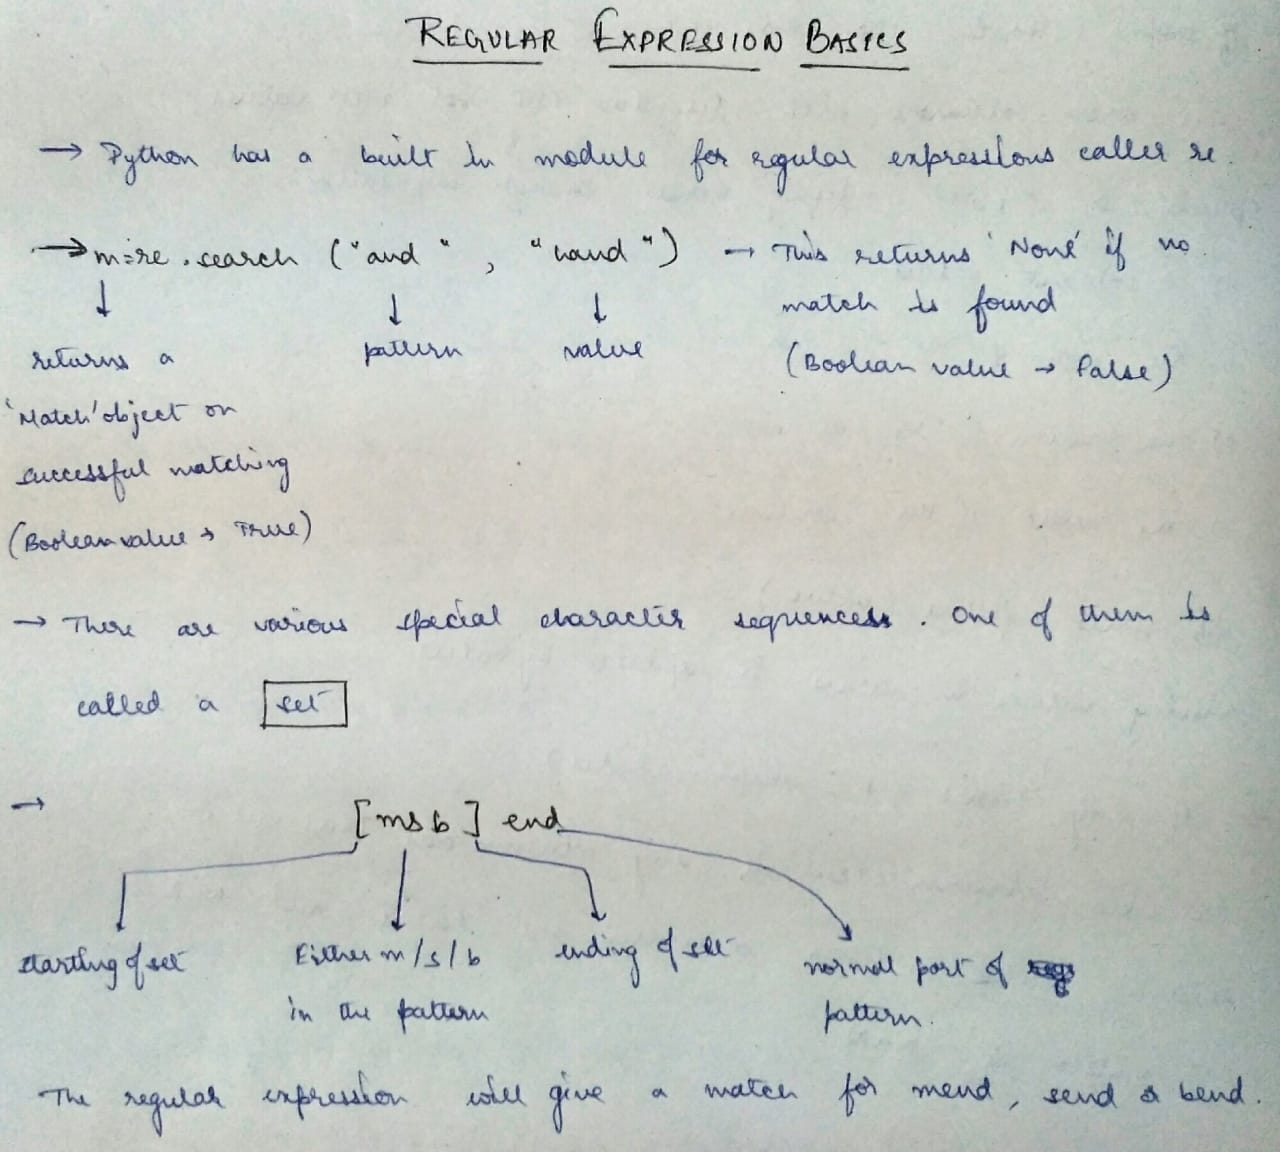 REGULAR EXPRESSION BASICS
→ Python has a built in module for regular expressions caller re.
→ m=re.search ("and", "hand") → This returns 'None' if no
match is found
(Boolean value → False)
↓ ↓ ↓
returns a pattern value
'Match' object on
successful matching
(Boolean value → True)
→ There are various special character sequences. One of them is
called a set
→
[msb] end
starting of set Either m/s/b ending of set normal part of
in the pattern pattern.
The regular expression will give a match for mend, send & bend.